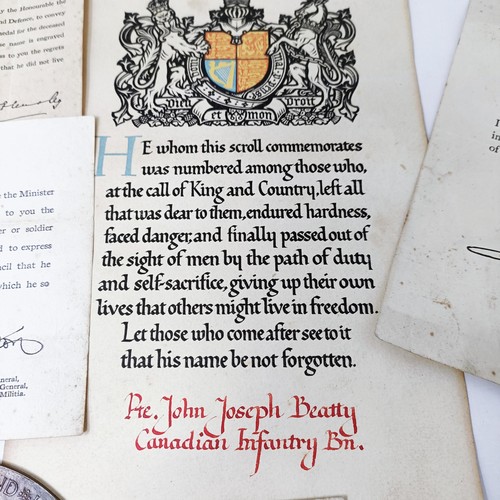 by the Honourable the
nd Defence, to convey
medal for the deceased
se name is engraved
ess to you the regrets
that he did not live
the Minister
to you the
er or soldier
d to express
ncil that he
which he so
neral,
General,
Militia.
Dieu et mon Droit
HE whom this scroll commemorates
was numbered among those who,
at the call of King and Country, left all
that was dear to them, endured hardness,
faced danger, and finally passed out of
the sight of men by the path of duty
and self-sacrifice, giving up their own
lives that others might live in freedom.
Let those who come after see to it
that his name be not forgotten.
Pte. John Joseph Beatty
Canadian Infantry Bn.
I
in
of